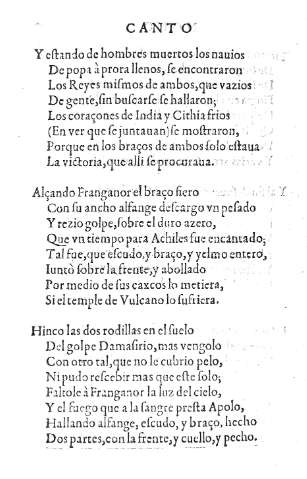 CANTO
Y estando de hombres muertos los nauios
De popa à prora llenos, se encontraron
Los Reyes mismos de ambos, que vazios
De gente, sin buscarse se hallaron;
Los coraçones de India y Cithia frios
(En ver que se juntauan) se mostraron,
Porque en los braços de ambos solo estaua
La victoria, que alli se procuraua.
Alçando Franganor el braço fiero
Con su ancho alfange descargo vn pesado
Y rezio golpe, sobre el duro azero,
Que vn tiempo para Achiles fue encantado;
Tal fue, que escudo, y braço, y yelmo entero,
Iuntò sobre la frente, y abollado
Por medio de sus caxcos lo metiera,
Si el temple de Vulcano lo sufriera.
Hinco las dos rodillas en el suelo
Del golpe Damasirio, mas vengolo
Con otro tal, que no le cubrio pelo,
Ni pudo rescebir mas que este solo;
Faltole à Franganor la luz del cielo,
Y el fuego que a la sangre presta Apolo,
Hallando alfange, escudo, y braço, hecho
Dos partes, con la frente, y cuello, y pecho.